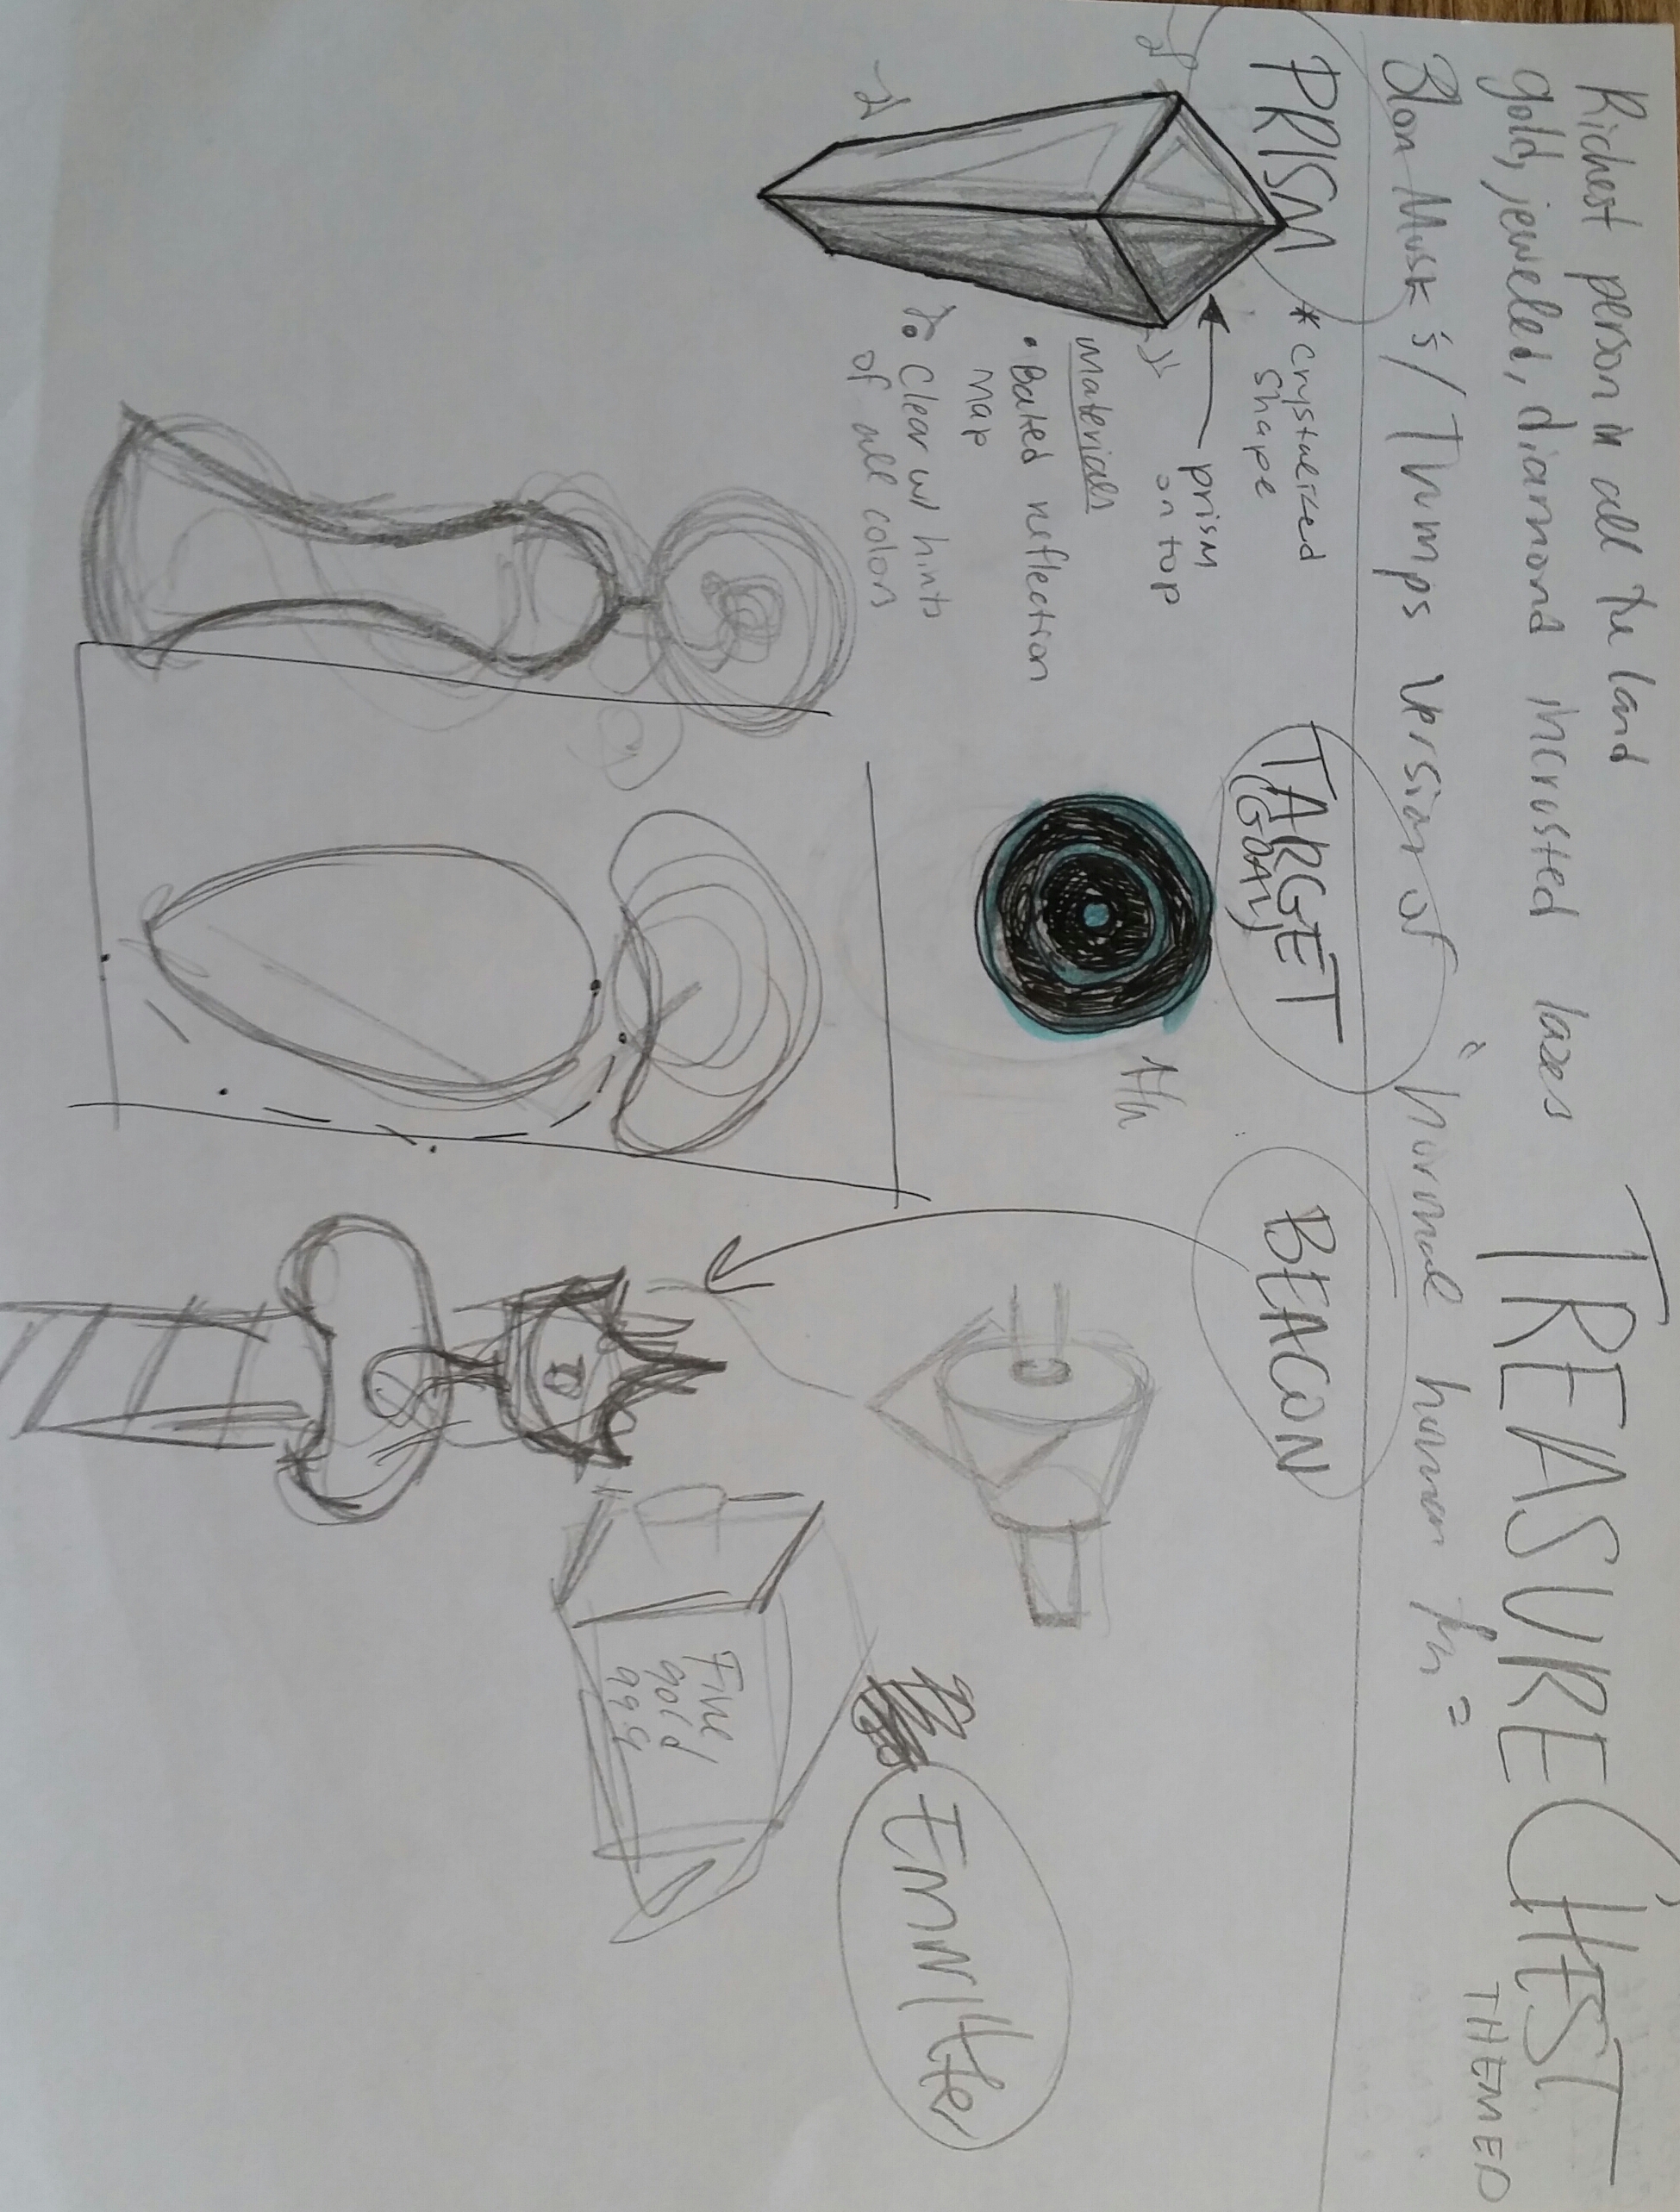 Richest person in all the land
gold, jeweled, diamond incrusted lazes
TREASURE CHEST
THEMED
Elon Musk's / Trumps version of "normal human fun"
PRISM
* Crystalized
Shape
prism
on top
Materials
• Baked reflection
map
• Clear w/ hints
of all colors
TARGET
(GOAL)
BEACON
Emmitter
Fine
gold
999